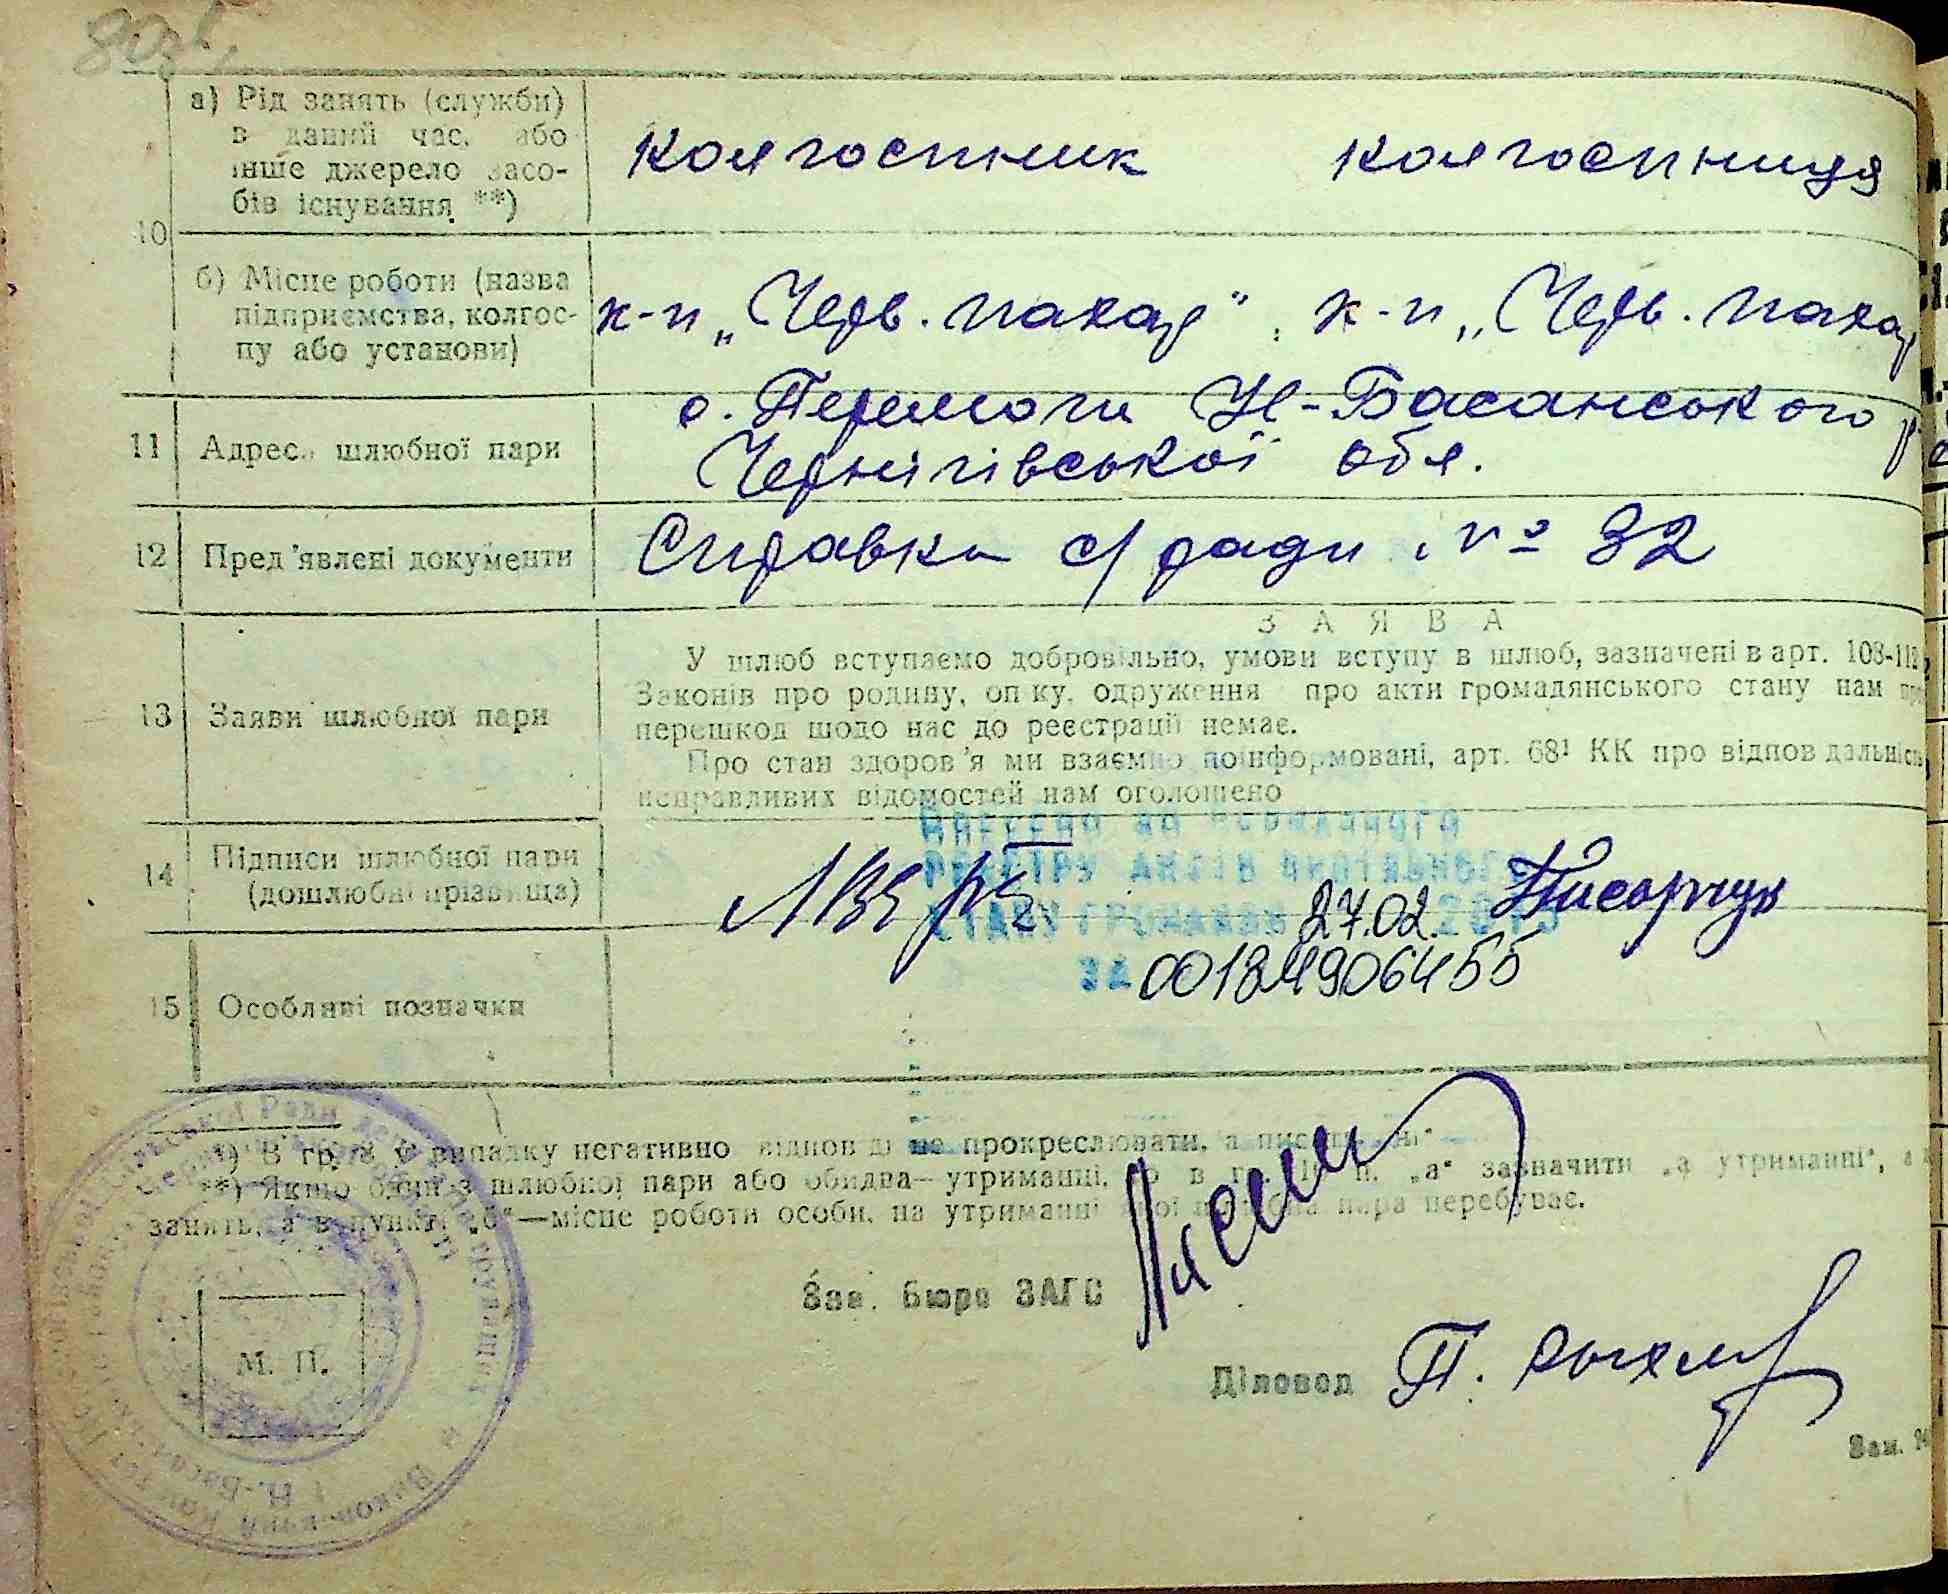 803б.
а) Рід занять (служби)
в даний час, або
інше джерело засо-
бів існування **)
колгоспник колгоспниця
10
б) Місце роботи (назва
підприємства, колгос-
пу або установи)
к-п „Черв. пахар" к-п „Черв. пахар
с. Перемоги Н-Басанського р
11 Адрес шлюбної пари
Чернігівської обл.
12 Пред'явлені документи
Справка с/ради № 32
З А Я В А
У шлюб вступаємо добровільно, умови вступу в шлюб, зазначені в арт. 108-112
Законів про родину, опіку, одруження про акти громадянського стану нам
13 Заяви шлюбної пари
перешкод щодо нас до реєстрації немає.
Про стан здоров'я ми взаємно поінформовані, арт. 68¹ КК про відповідальність
неправдивих відомостей нам оголошено
Внесено до Державного
14 Підписи шлюбної пари
(дошлюбні прізвища)
реєстру актів цивільного
стану громадян 27.02.
за 00184906455
15 Особливі позначки
*) В гр. 8 у випадку негативно відповіді не прокреслювати, а писати „ні"
**) Якщо один з шлюбної пари або обидва—утриманці, то в гр. 10 п. „а" зазначити „а утриманці",
занять, а в пункті „б"—місце роботи особи, на утриманні якої шлюбна пара перебуває.
Зав. бюро ЗАГС
М. П.
Діловод П.
Зам.